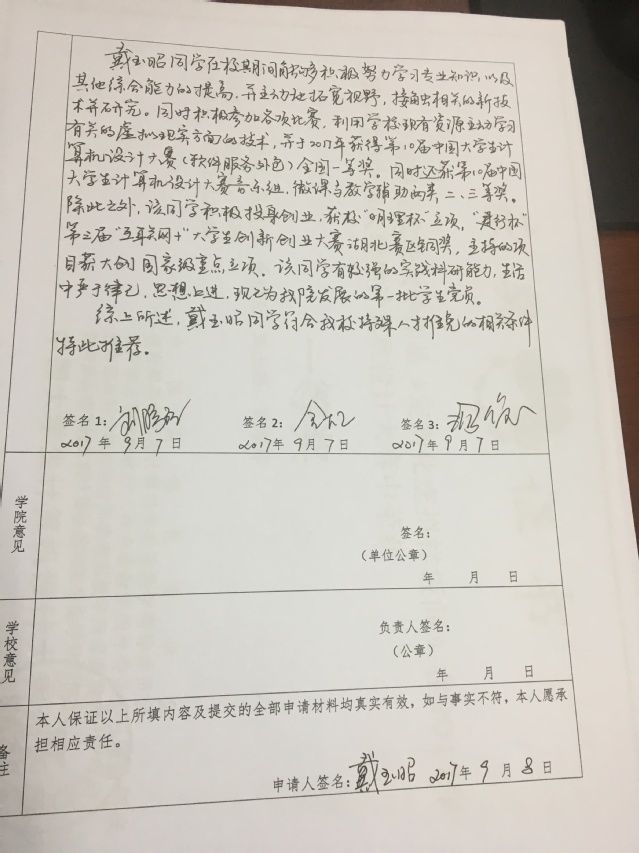 戴玉昭同学在校期间能够积极努力学习专业知识,以及
其他综合能力的提高,并主动地拓宽视野,接触相关的新技
术并研究。同时积极参加各项比赛,利用学校现有资源主动学习
有关的虚拟现实方面的技术,并于2017年获得第10届中国大学生计
算机设计大赛(软件服务外包)全国一等奖。同时还获第10届中国
大学生计算机设计大赛音乐组,微课与教学辅助两类,二、三等奖。
除此之外,该同学积极投身创业,获校“明理杯”立项,“建行杯”
第三届“互联网+”大学生创新创业大赛湖北赛区铜奖,主持的项
目获大创国家级重点立项。该同学有较强的实践科研能力,生活
中严于律己,思想上进,现已为我院发展的第一批学生党员。
综上所述,戴玉昭同学符合我校特殊人才推免的相关条件
特此推荐。
签名1: 签名2: 签名3:
2017年9月7日 2017年9月7日 2017年9月7日
学院意见
签名:
(单位公章)
年 月 日
学校意见
负责人签名:
(公章)
年 月 日
备注
本人保证以上所填内容及提交的全部申请材料均真实有效,如与事实不符,本人愿承
担相应责任。
申请人签名:戴玉昭 2017年9月8日